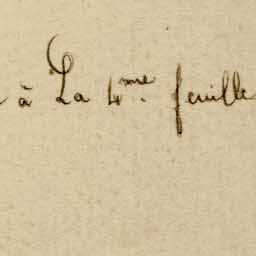 à La 4.me feuille